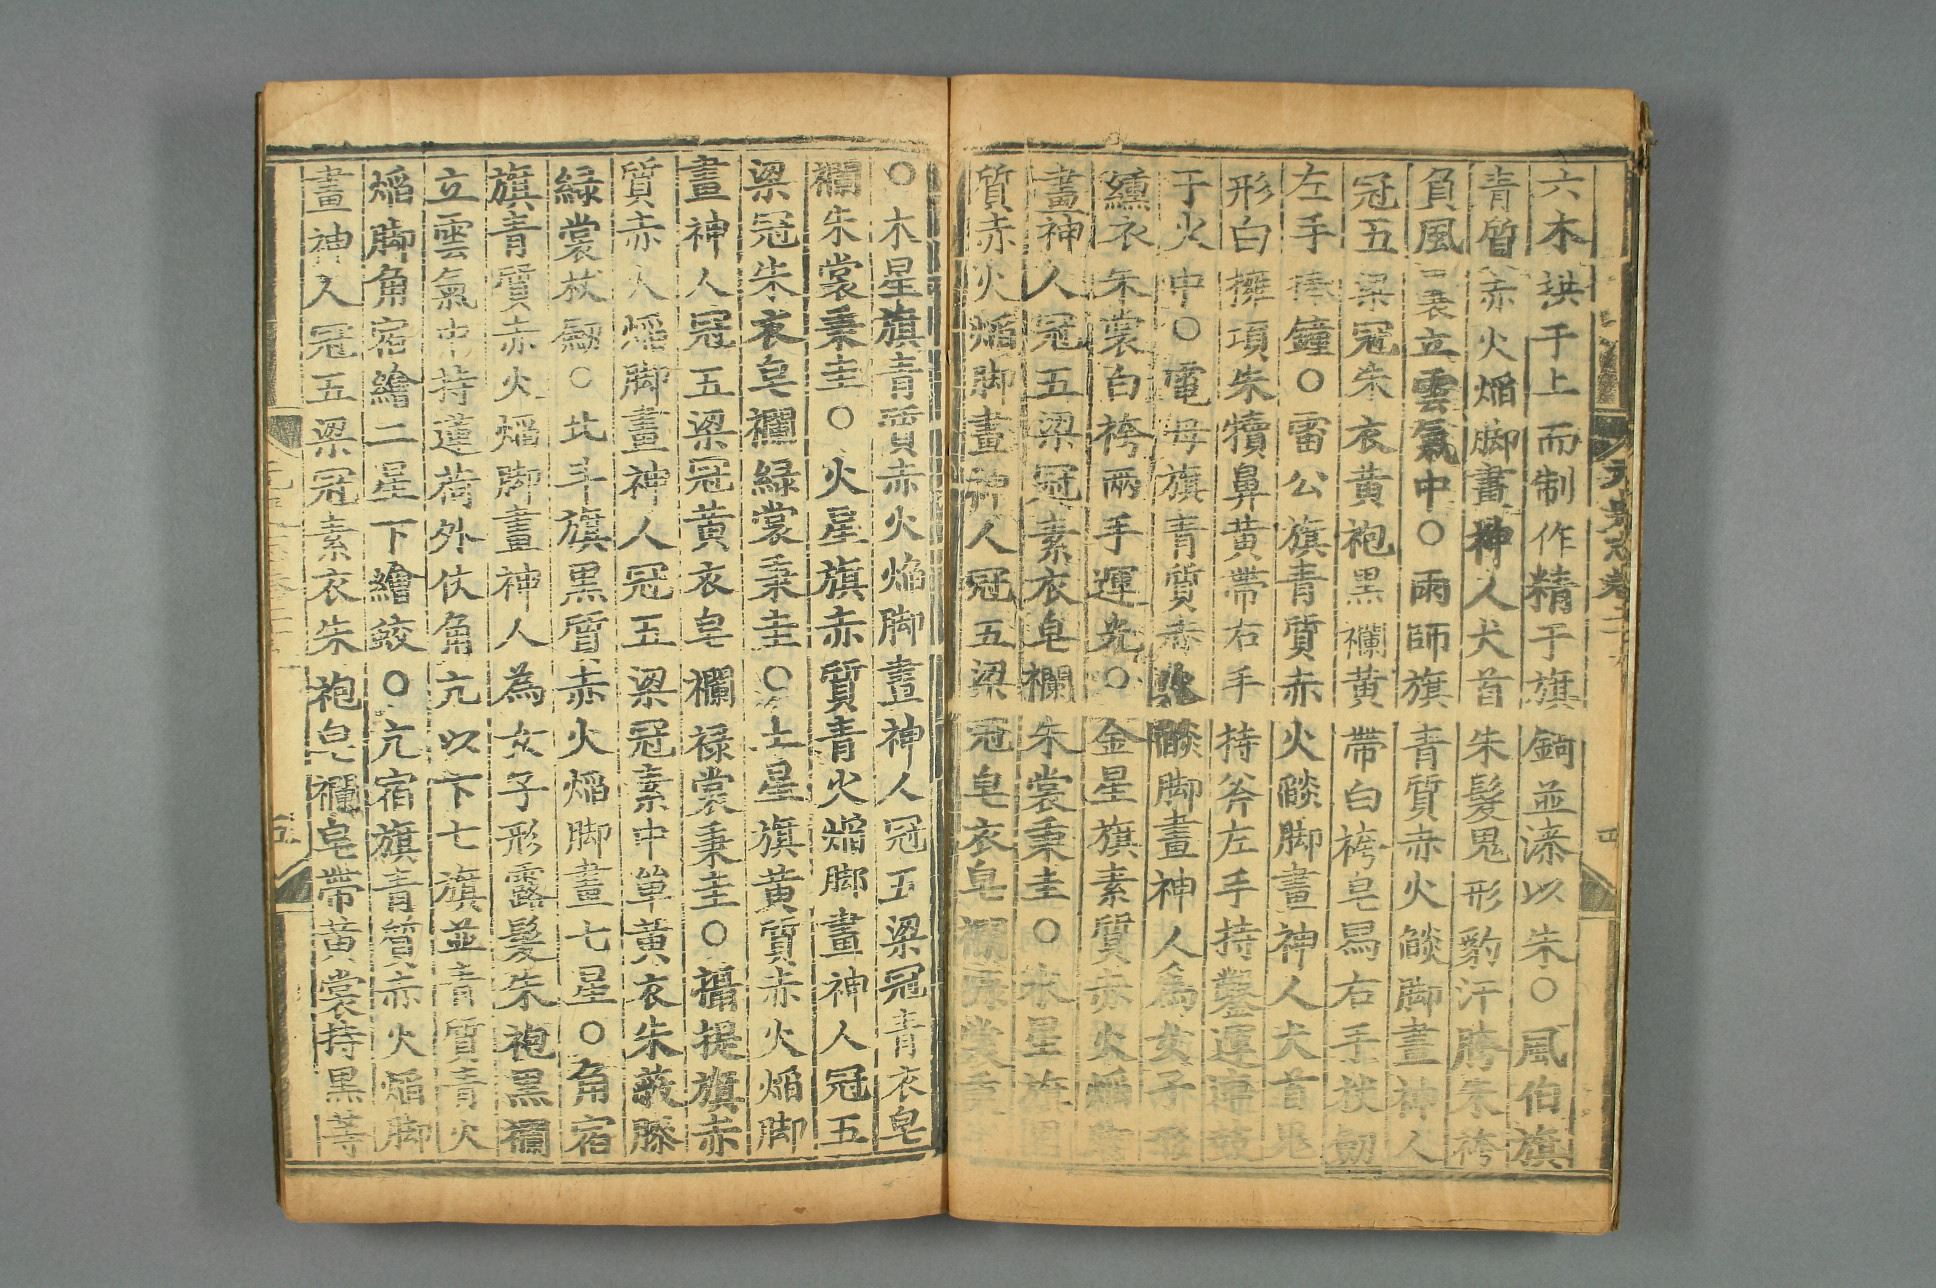 六木拱于上而制作精于旗銄並漆以朱○風伯旗
青質赤火焰脚畫神人犬首朱髮鬼形豹汗胯朱袴
負風囊立雲氣中○雨師旗青質赤火焰脚畫神人
冠五梁冠朱衣黄袍黑襴黄帶白袴皂舄右手杖劒
左手捧鐘○雷公旗青質赤火焰脚畫神人犬首鬼
形白擁項朱犢鼻黄帶右手持斧左手持鑿運連鼓
于火中○電母旗青質赤火焰脚畫神人為女子形
纁衣朱裳白袴兩手運光○金星旗素質赤火焰脚
畫神人冠五梁冠素衣皂襴朱裳秉圭○水星旗黑
質赤火焰脚畫神人冠五梁冠皂衣皂襴綠裳秉
○木星旗青質赤火焰脚畫神人冠五梁冠青衣皂
襴朱裳秉圭○火星旗赤質青火焰脚畫神人冠五
梁冠朱衣皂襴緑裳秉圭○土星旗黄質赤火焰脚
畫神人冠五梁冠黄衣皂襴禄裳秉圭○攝提旗赤
質赤火焰脚畫神人冠五梁冠素中單黄衣朱蔽膝
緑裳杖劒○北斗旗黑質赤火焰脚畫七星○角宿
旗青質赤火焰脚畫神人為女子形露髮朱袍黑襴
立雲氣中持蓮荷外仗角亢以下七旗並青質青火
焰脚角宿繪二星下繪蛟○亢宿旗青質赤火焰脚
畫神人冠五梁冠素衣朱袍皂襴皂帶黄裳持黑等
天 志卷二
四
五